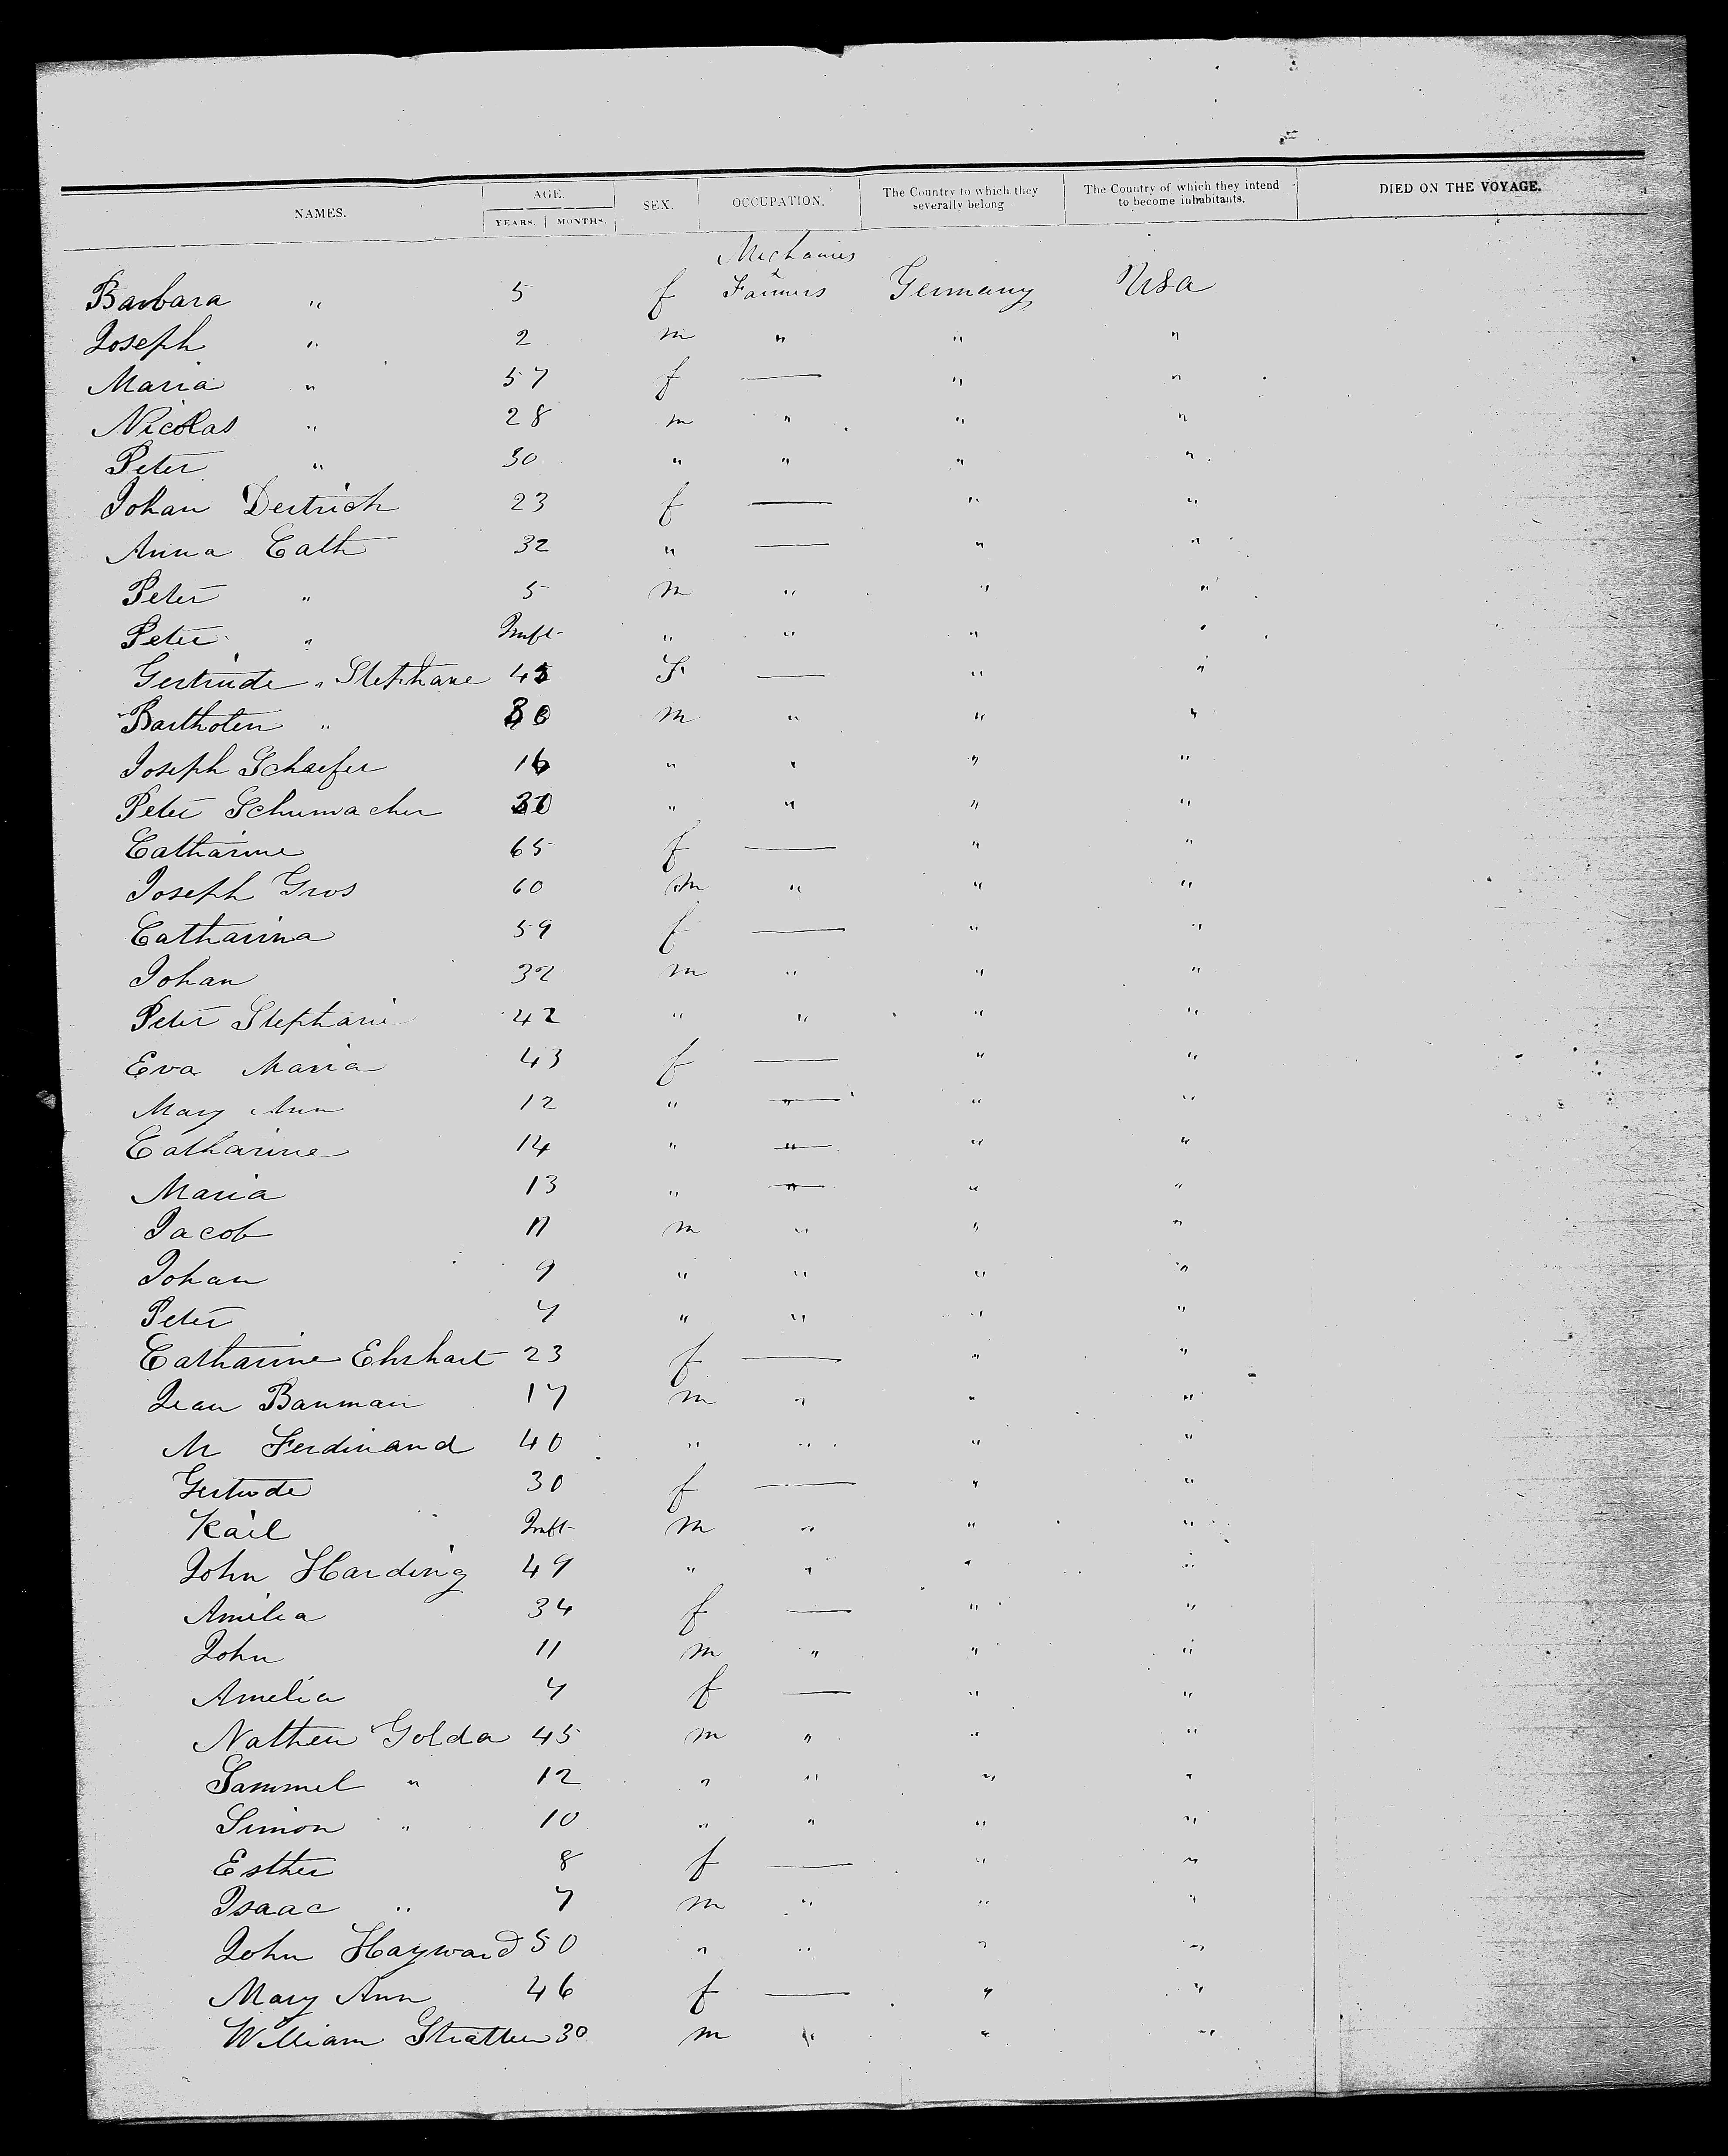 NAMES. AGE. YEARS. MONTHS. SEX. OCCUPATION. The Country to which they severally belong The Country of which they intend to become inhabitants. DIED ON THE VOYAGE.
Mechanics
Barbara " 5 f Farmers Germany USA
Joseph " 2 m " " "
Maria " 57 f — " "
Nicolas " 28 m " " "
Peter " 30 " " " "
Johan Dertrich 23 f — " "
Anna Cath 32 " — " "
Peter " 5 m " " "
Peter " Inft " " " "
Gertrude " Stephane 45 F — " "
Bartholen " 30 m " " "
Joseph Schaefer 16 " " " "
Peter Schumacher " " " "
Catharine 65 f — " "
Joseph Gros 60 m " " "
Catharina 59 f — " "
Johan 32 m " " "
Peter Stephanie 42 " " " "
Eva Maria 43 f — " "
Mary Ann 12 " — " "
Catharine 14 " — " "
Maria 13 " — " "
Jacob 11 m " " "
Johan 9 " " " "
Peter 7 " " " "
Catharine Ehrhart 23 f — " "
Jean Bauman 17 m " " "
M Ferdinand 40 " " " "
Gertrude 30 f — " "
Karl Inft m " " "
John Harding 49 " " " "
Amilia 34 f — " "
John 11 m " " "
Amelia 7 f — " "
Nathen Golda 45 m " " "
Sammel " 12 " " " "
Simon " 10 " " " "
Esther 8 f — " "
Isaac " 7 m " " "
John Hayward 50 " " " "
Mary Ann 46 f — " "
William Stratten 30 m " " "